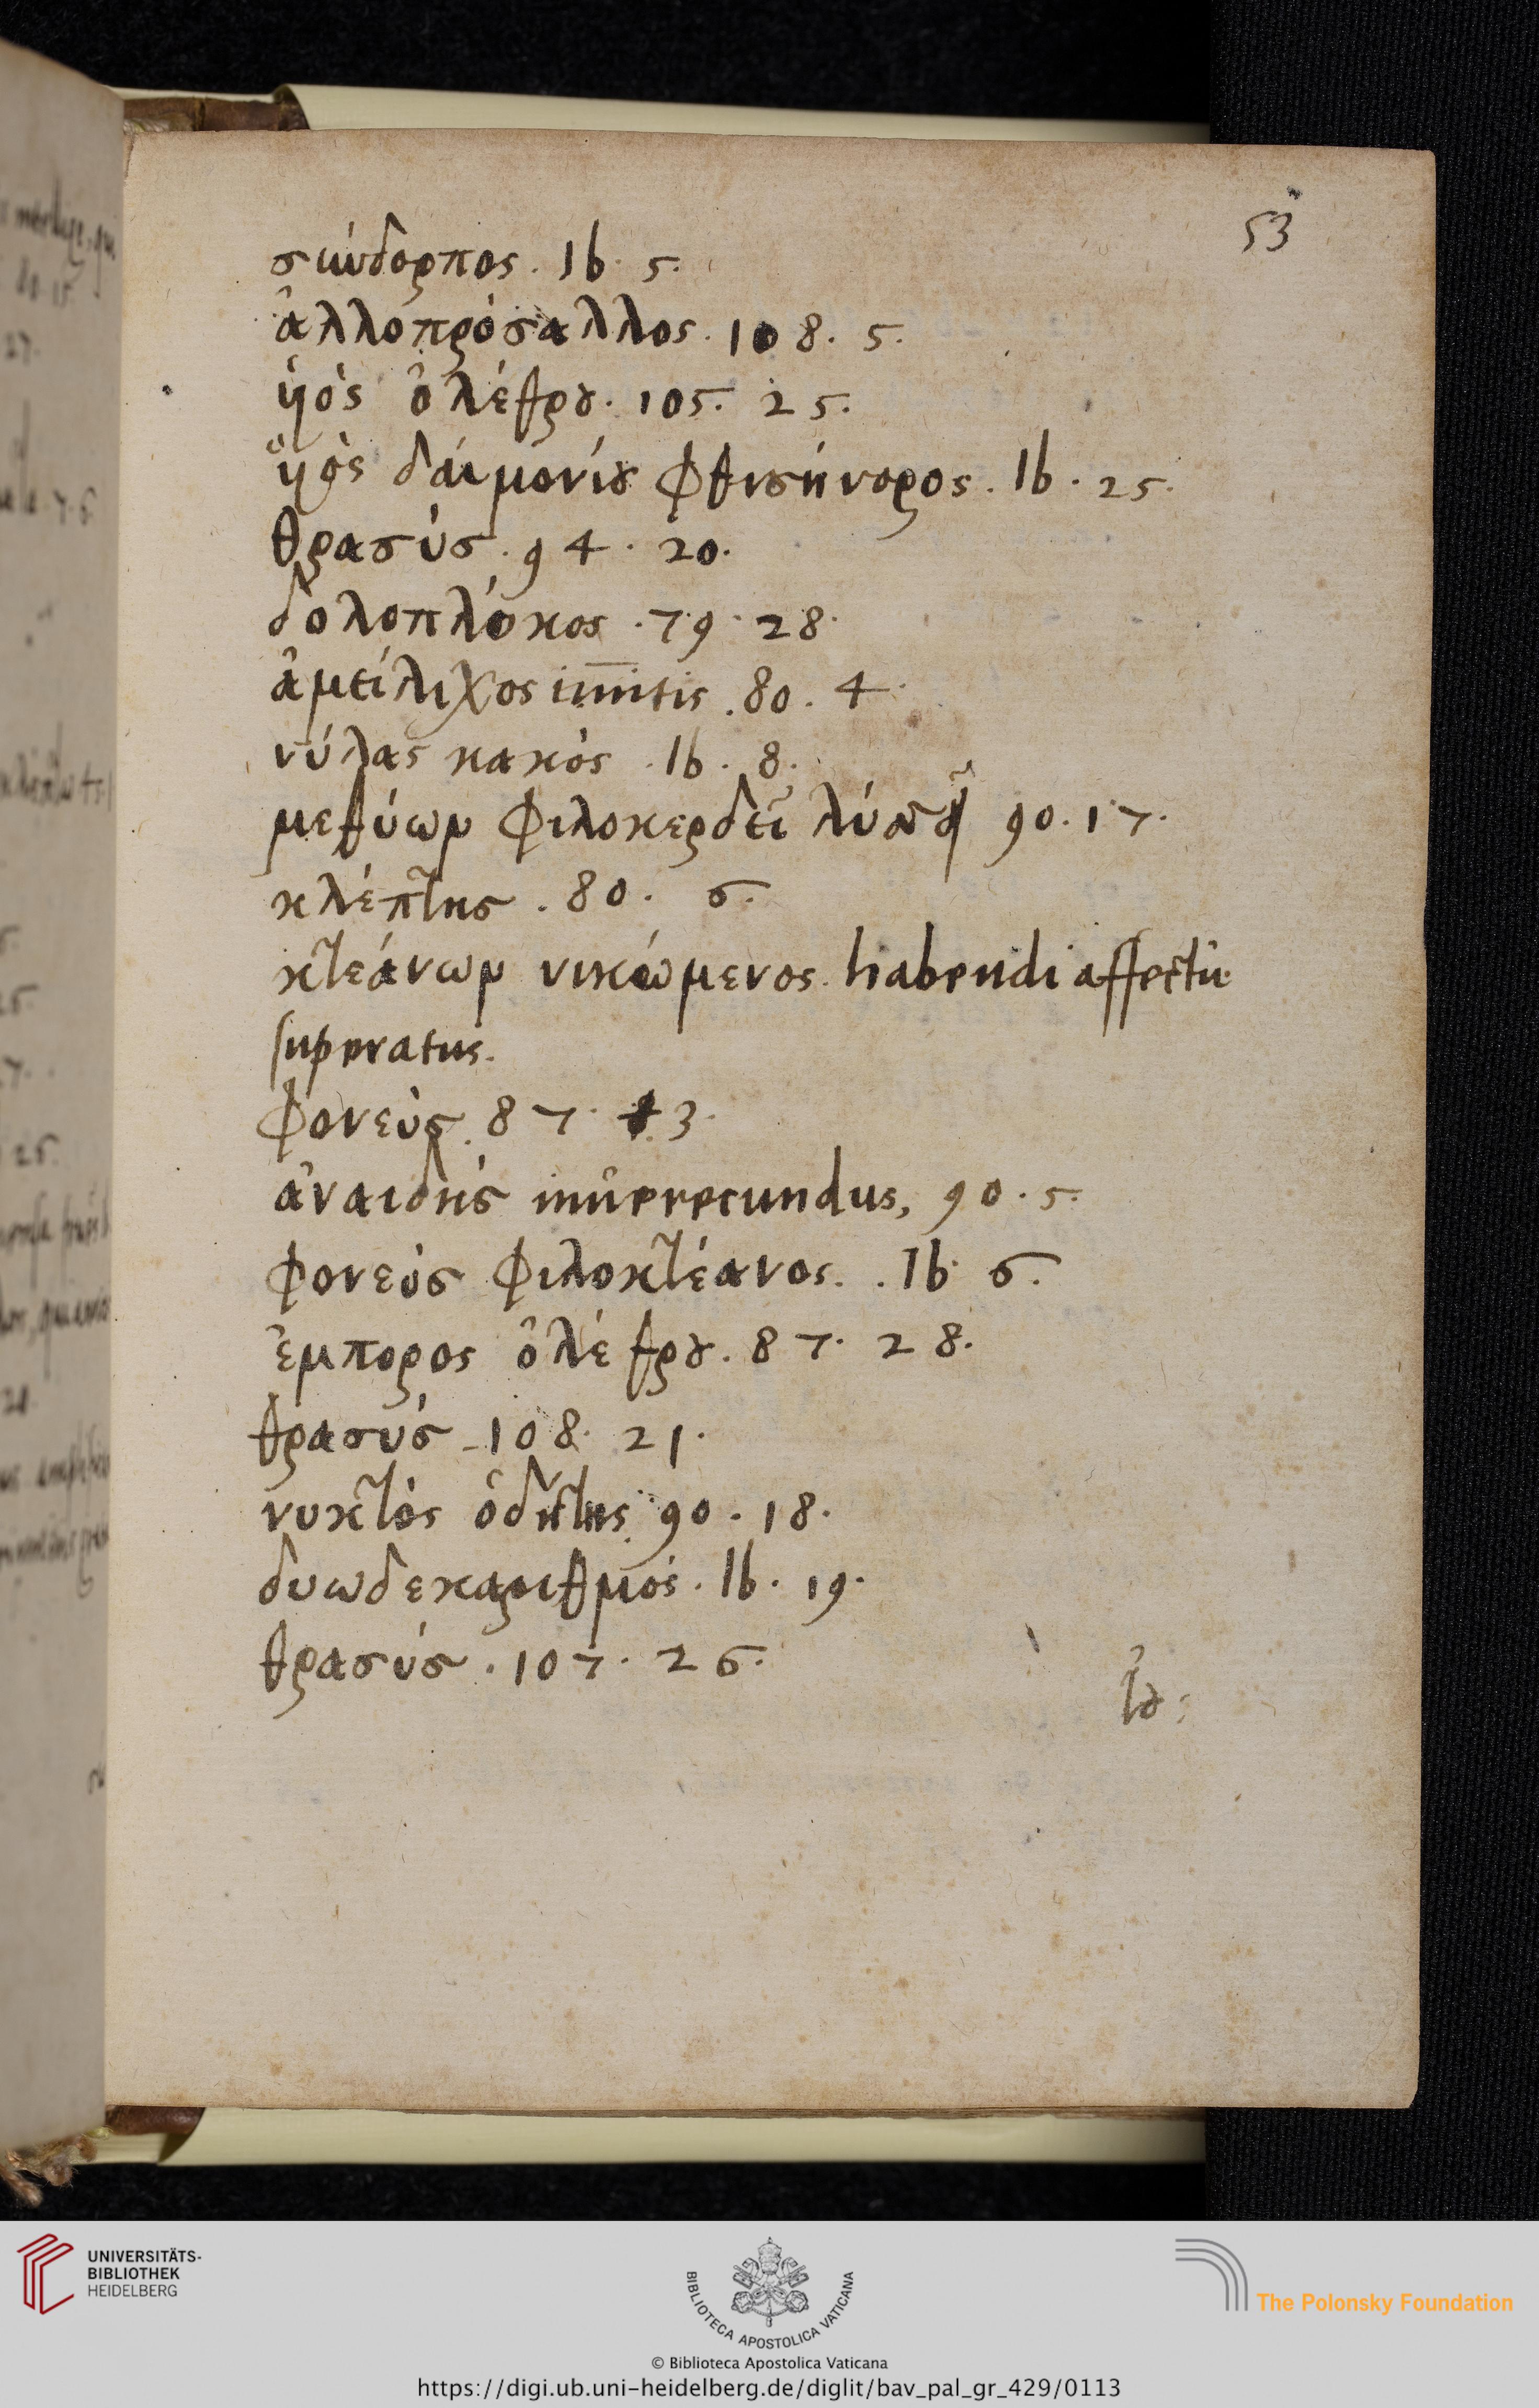 53
σύνδορπος . Ib. 5.
ἀλλοπρόσαλλος. 108. 5.
ὑιὸς ὀλέθρου. 105. 25.
ὑιὸς δαιμονίου φθισήνορος. Ib. 25.
θρασύς. 94. 20.
δολοπλόκος . 79. 28.
ἀμείλιχος im̅itis . 80. 4.
κακὸς . Ib. 8.
μεθύων φιλοκερδέϊ λύσσῃ 90. 17.
κλέπτης . 80. 6.
κτεάνων νικώμενος. habendi affectu
superatus.
φονεύς. 87. 3.
ἀναιδής inverecundus, 90. 5.
φονεὺς φιλοκτέανος. . Ib. 6.
ἔμπορος ὀλέθρου. 87. 28.
θρασύς 108. 21.
νυκτὸς ὁδίτης 90. 18.
δυωδεκαριθμός. Ib. 19.
θρασύς. 107. 26.
UNIVERSITÄTS-
BIBLIOTHEK
HEIDELBERG
BIBLIOTECA APOSTOLICA VATICANA
The Polonsky Foundation
© Biblioteca Apostolica Vaticana
https://digi.ub.uni-heidelberg.de/diglit/bav_pal_gr_429/0113